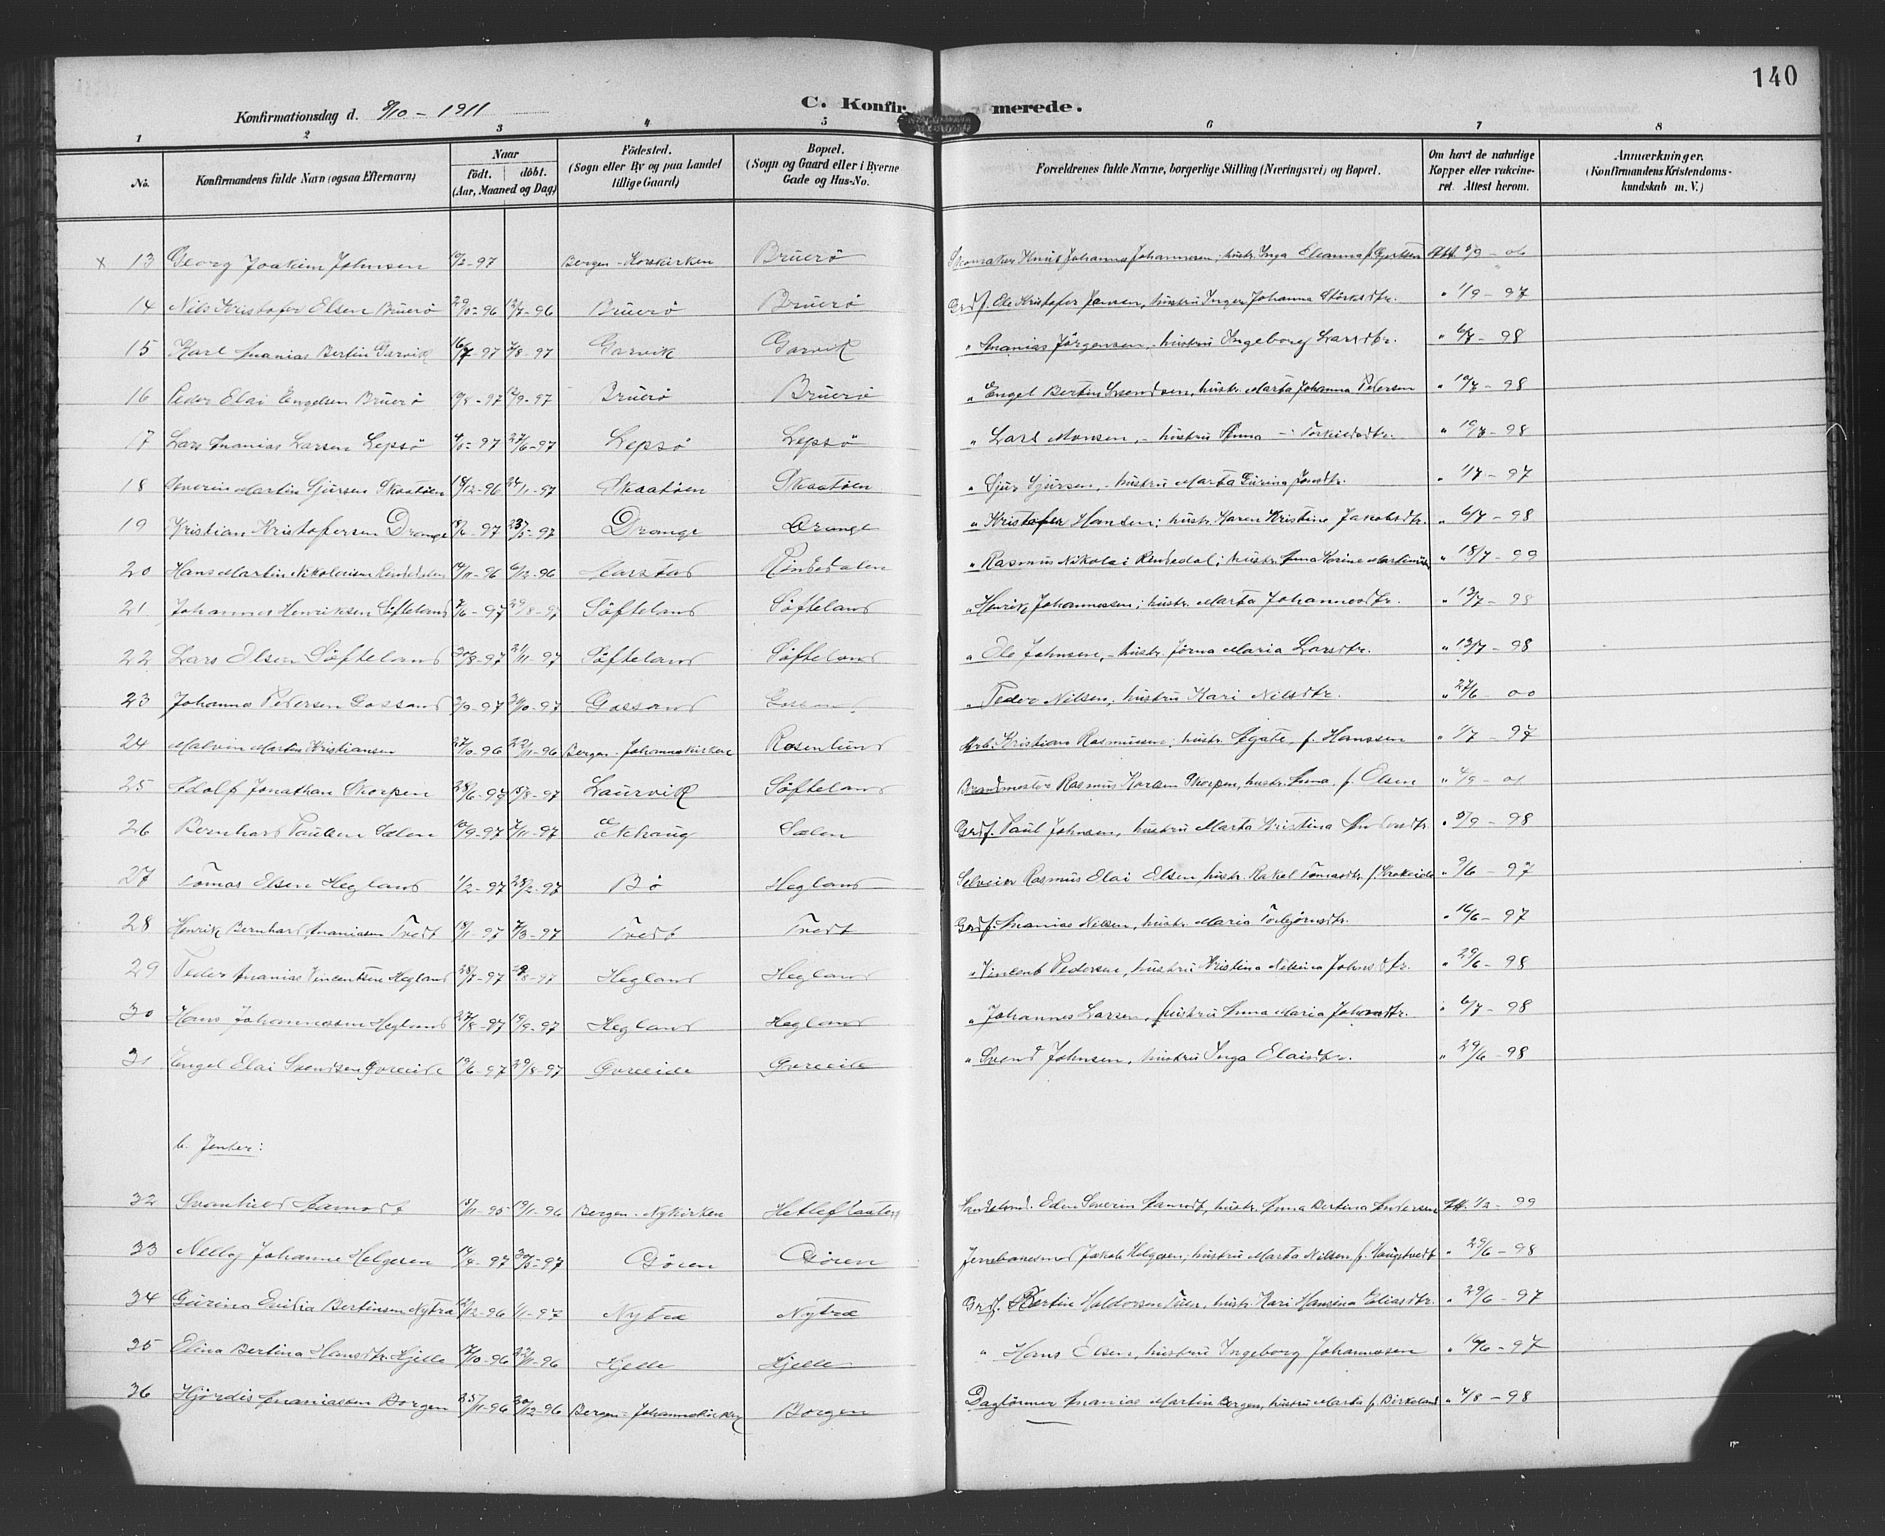 140
C. Konfirmerede.
Konfirmationsdag d. 8/10 - 1911
1 2 3 4 5 6 7 8
No. Konfirmandens fulde Navn (ogsaa Efternavn) Naar födt. döbt. (Aar, Maaned og Dag) Födested. (Sogn eller By og paa Landet tillige Gaard) Bopæl. (Sogn og Gaard eller i Byerne Gade og Hus-No. Forældrenes fulde Navne, borgerlige Stilling (Næringsvei) og Bopæl. Om havt de naturlige Kopper eller vakcineret. Attest herom. Anmærkninger. (Konfirmandens Kristendomskundskab m. V.)
x 13 Georg Joakim Johnsen -97 Bergen - Korskirken Bruerø Skomaker Knut Johannes Johannesen, hustr. Inga Elianna f. Gjertsen Att. - 06
14 Nils Kristofer Olsen Bruerø 29/5-96 12/7-96 Bruerø Bruerø Grdf. Ole Kristofer Jensen, hustru Inger Johanna Størksdtr. " 1/9 - 97
15 Karl Ananias Bertin Garvik 16/7-97 /8-97 Garvik Garvik " Ananias Jørgensen, - hustru Ingeborg Larsdtr. " 6/7 - 98
16 Peder Elai Engelsen Bruerø /8-97 12/9-97 Bruerø Bruerø " Engel Bertin Svendsen, hustr. Marta Johanna Pedersen " 19/7 - 98
17 Lars Ananias Larsen Lepsø 4/5-97 27/6-97 Lepsø Lepsø " Lars Monsen, - hustru Anna - Torkildsdtr. " - 98
18 Severin Martin Sjursen Skaatøen 18/12-96 24/1-97 Skaatøen Skaatøen " Sjur Sjursen, - hustru Marta Gurina Jonsdtr. " 1/7 - 97
19 Kristian Kristofersen Drange -97 23/5-97 Drange Drange " Kristofer Hansen; hustr. Karen Kristine Jakobsdtr. " 6/7 - 98
20 Hans Martin Nikolaisen /11-96 6/12-96 Aarstad Rindedalen " Rasmus Nikolai Rendedal; hustr. Anna Korine " 18/7 - 99
21 Johannes Henriksen Søfteland /6-97 29/8-97 Søfteland Søfteland " Henrik Johannessen; hustr. Marta Johannesdtr. " 13/7 - 98
22 Lars Olsen Søfteland 30/8-97 21/11-97 Søfteland Søfteland " Ole Johnsen, - hustr. Jørna Maria Larsdtr. " 13/7 - 98
23 Johannes Pedersen Gaasand /9-97 /10-97 Gaasand " Peder Nilsen, hustru Kari Nilsdtr. " 27/6 - 00
24 Malvin Martin Kristiansen 27/10-96 22/11-96 Bergen - Johanneskirken Rosenlund Arb. Kristian Rasmussen; hustr. Agate, f. Hanssen " 1/7 - 97
25 Adolf Jonathan Skorpen 28/6-97 15/8-97 Laurvik Søfteland Brandmester Rasmus Skorpen, hustr. Anna f. Olsen " 4/9 - 01
26 Bernhard Paulsen Sælen 10/9-97 7/11-97 Ekhaug Sælen Grdf. Paul Johnsen, hustru Marta Kristina " /9 - 98
27 Tomas Olsen Hegland 1/2-97 28/2-97 Bø Hegland Selveier Rasmus Elai Olsen, hustr. Rakel Tomasdtr. f. Krokeide " 9/6 - 97
28 Henrik Bernhard Ananiasen Tvedt 18/1-97 7/3-97 Tvedt Tvedt Grdf. Ananias Nilsen, hustr. Maria Torbjørnsdtr. " 16/6 - 97
29 Peder Ananias Vincentsen Hegland 28/7-97 29/8-97 Hegland Hegland " Vincent Pedersen, hustru Kristina Nilsina Johnsdtr. " 29/6 - 98
30 Hans Johannessen Hegland 27/8-97 19/9-97 Hegland Hegland " Johannes Larsen, hustru Anna Maria Johansdtr. " 6/7 - 98
31 Engel Elai Svendsen Gverreide 19/6-97 29/8-97 Gverreide " Svend Johnsen, hustru Inga Elaisdtr. " 29/6 - 98
b. Jenter:
32 Svanhild Aamodt 15/11-95 19/1-96 Bergen - Nykirken Hetleflaaten Edin Severin Aamodt, hustr. Anna Bertina Andersen Att. 1/2 - 99
33 Nelly Johanne Helgesen 14/4-97 30/5-97 Døsen Døsen Jernbanemand Jakob Helgesen; hustru Marta Nilsen f. Haugtvedt " 29/6 - 98
34 Gurina Emilia Bertinsen Nytræ 12/12-96 /1-97 Nytræ Nytræ Grdf. Bertin Haldorsen, hustr. Kari Hansina Eliasdtr. " 29/6 - 97
35 Elina Bertina Hansdtr. Hjelle 17/10-96 22/11-96 Hjelle Hjelle " Hans Olsen, hustru Ingeborg Johannessen " 16/6 - 97
36 Hjørdis Ananiassen Borgen 25/11-96 20/12-96 Bergen - Johanneskirken Borgen Daglønner Ananias Martin Borgen, hustru Marta f. Birkeland " 4/8 - 98